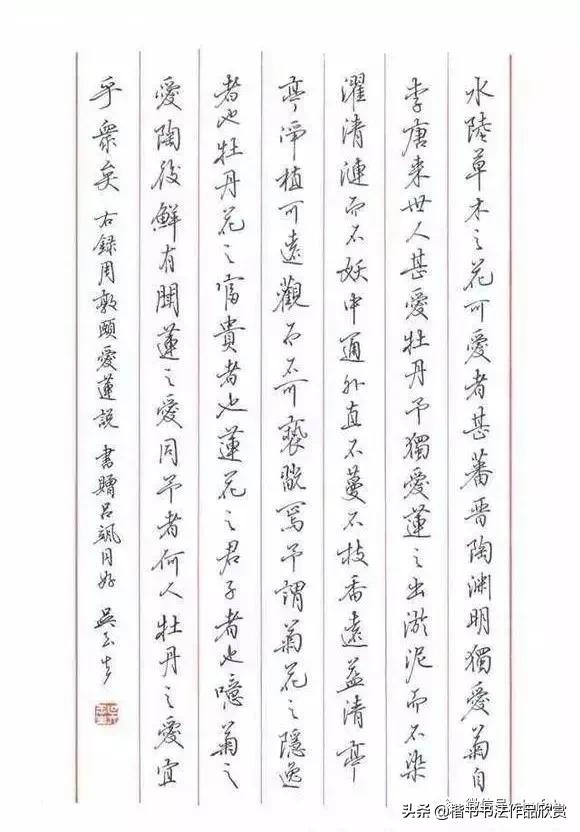 水陸草木之花可愛者甚蕃晋陶渊明獨愛菊自
李唐来世人甚愛牡丹予獨愛蓮之出淤泥而不染
濯清漣而不妖中通外直不蔓不枝香遠益清亭
亭淨植可遠觀而不可褻翫焉予謂菊花之隱逸
者也牡丹花之富貴者也蓮花之君子者也噫菊之
愛陶後鮮有聞蓮之愛同予者何人牡丹之愛宜
乎衆矣 右録周敦頤愛蓮説 書贈吕飒同好 吴玉生
微信号
头条 @楷书书法作品欣赏